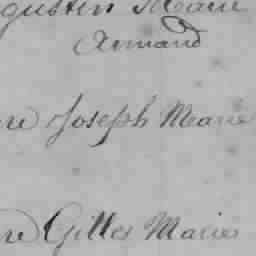 gustin Marie
Armand
re Joseph Marie
re Gilles Marie